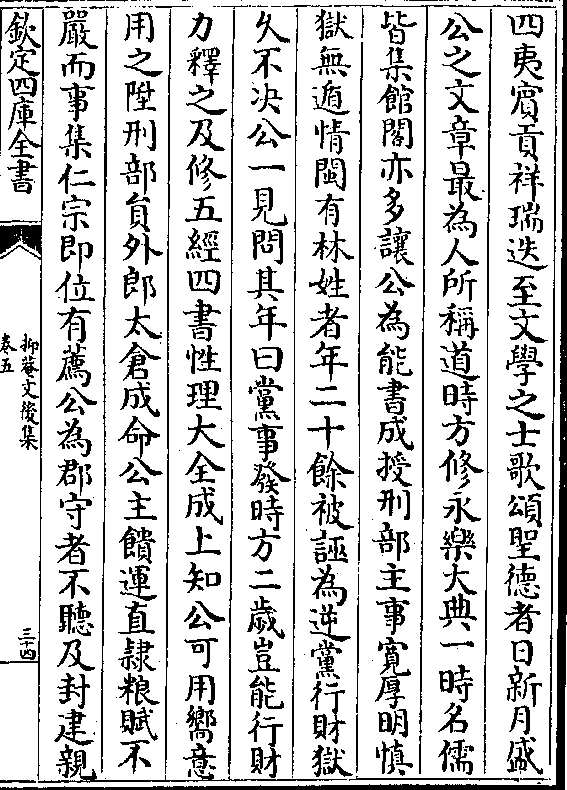 四夷賓貢祥瑞迭至文學之士歌頌聖德者日新月盛
公之文章最為人所稱道時方修永樂大典一時名儒
皆集館閣亦多讓公為能書成授刑部主事寛厚明慎
獄無遁情閩有林姓者年二十餘被誣為逆黨行財獄
久不決公一見問其年曰黨事發時方二歲豈能行財
力釋之及修五經四書性理大全成上知公可用嚮意
用之陞刑部員外郎太倉成命公主饋運直隷粮賦不
嚴而事集仁宗即位有薦公為郡守者不聽及封建親
欽定四庫全書
抑菴文後集
卷五
三十四